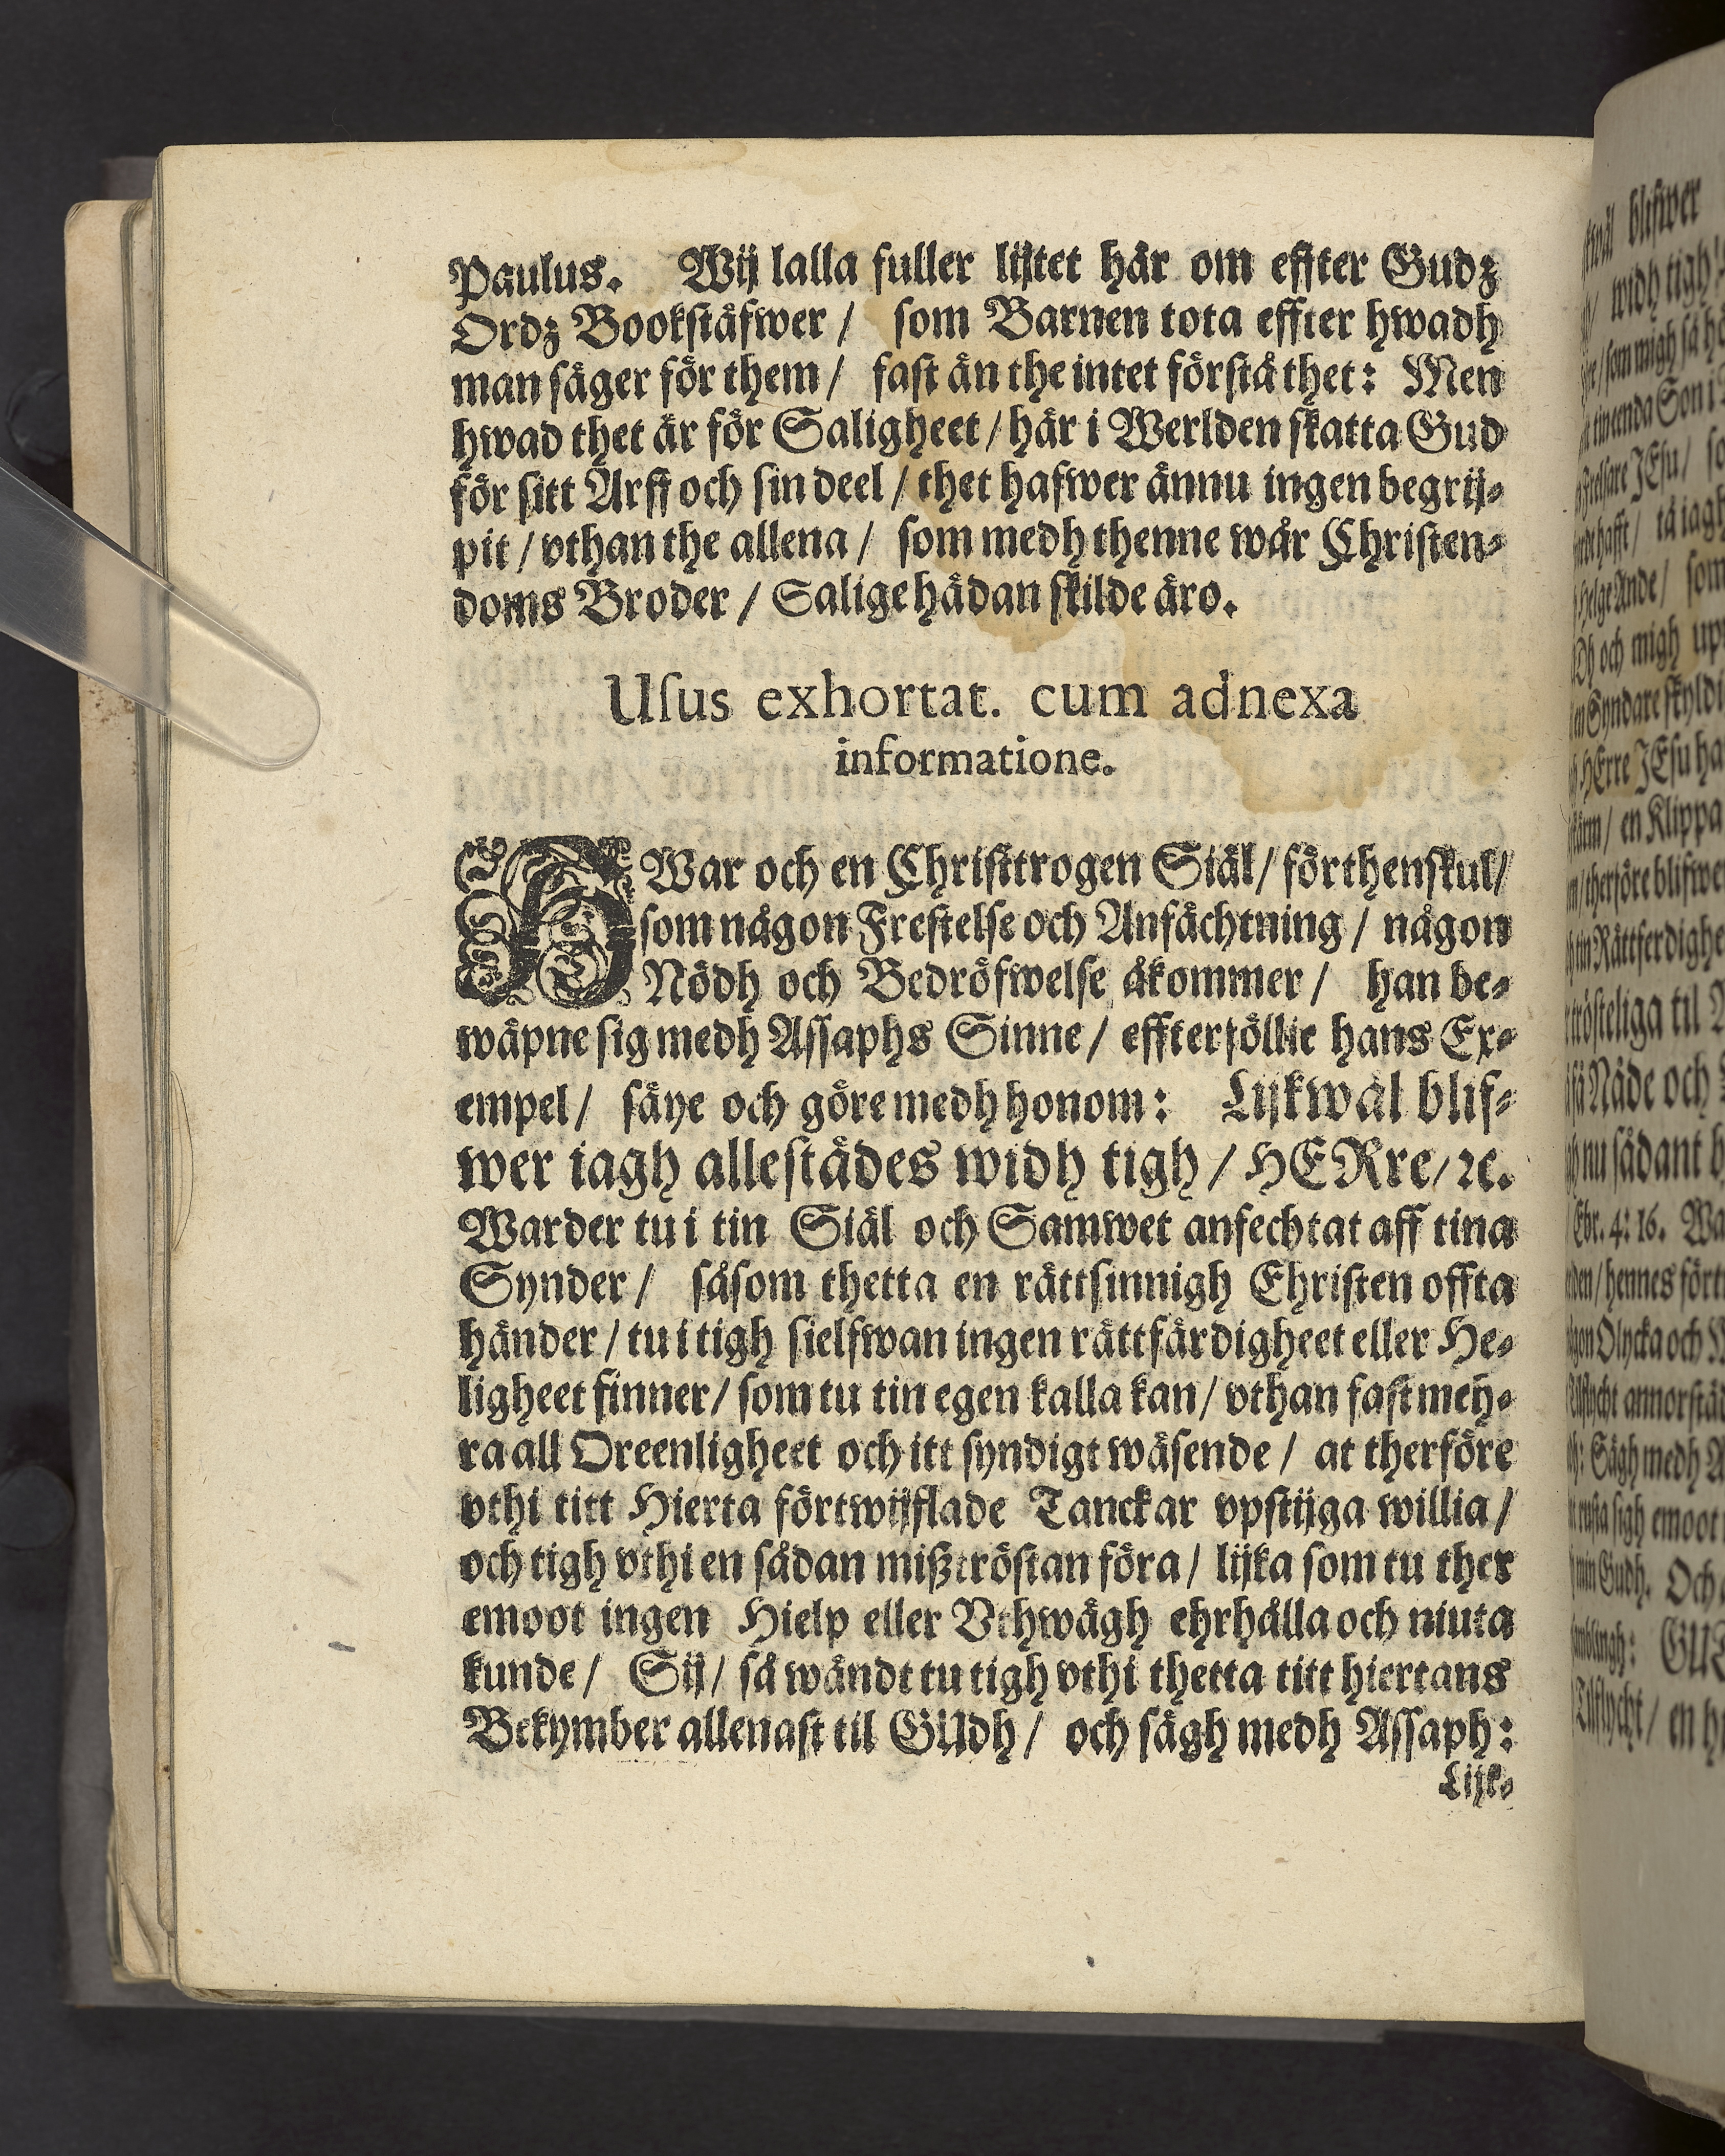 Paulus. Wij lalla fuller lijtet här om effter Gudz
Ordz Bookstäfwer / som Barnen tota effter hwadh
man säger för them / fast än the intet förstå thet: Men
hwad thet är för Saligheet / här i Werlden skatta Gud
för sitt Arff och sin deel / thet hafwer ännu ingen begrij-
pit / vthan the allena / som medh thenne wår Christen-
doms Broder / Salige hädan skilde äro.
Usus exhortat. cum adnexa
informatione.
HWar och en Christtrogen Siäl / förthenskul /
som någon Frestelse och Anfächtning / någon
Nödh och Bedröfwelse åkommer / han be-
wäpne sig medh Assaphs Sinne / effterföllie hans Ex-
empel / säye och göre medh honom: Lijkwäl blif-
wer iagh allestädes widh tigh / HERre / ꝛc.
Warder tu i tin Siäl och Samwet anfechtat aff tina
Synder / såsom thetta en rättsinnigh Christen offta
händer / tu i tigh sielfwan ingen rättfärdigheet eller He-
ligheet finner / som tu tin egen kalla kan / vthan fast mey-
ra all Oreenligheet och itt syndigt wäsende / at therföre
vthi titt Hierta förtwijflade Tanckar vpstijga willia /
och tigh vthi en sådan mißtröstan föra / lijka som tu ther
emoot ingen Hielp eller Vthwägh ehrhålla och niuta
kunde / Sij / så wändt tu tigh vthi thetta titt hiertans
Bekymber allenast til GUdh / och sägh medh Assaph:
Lijk-